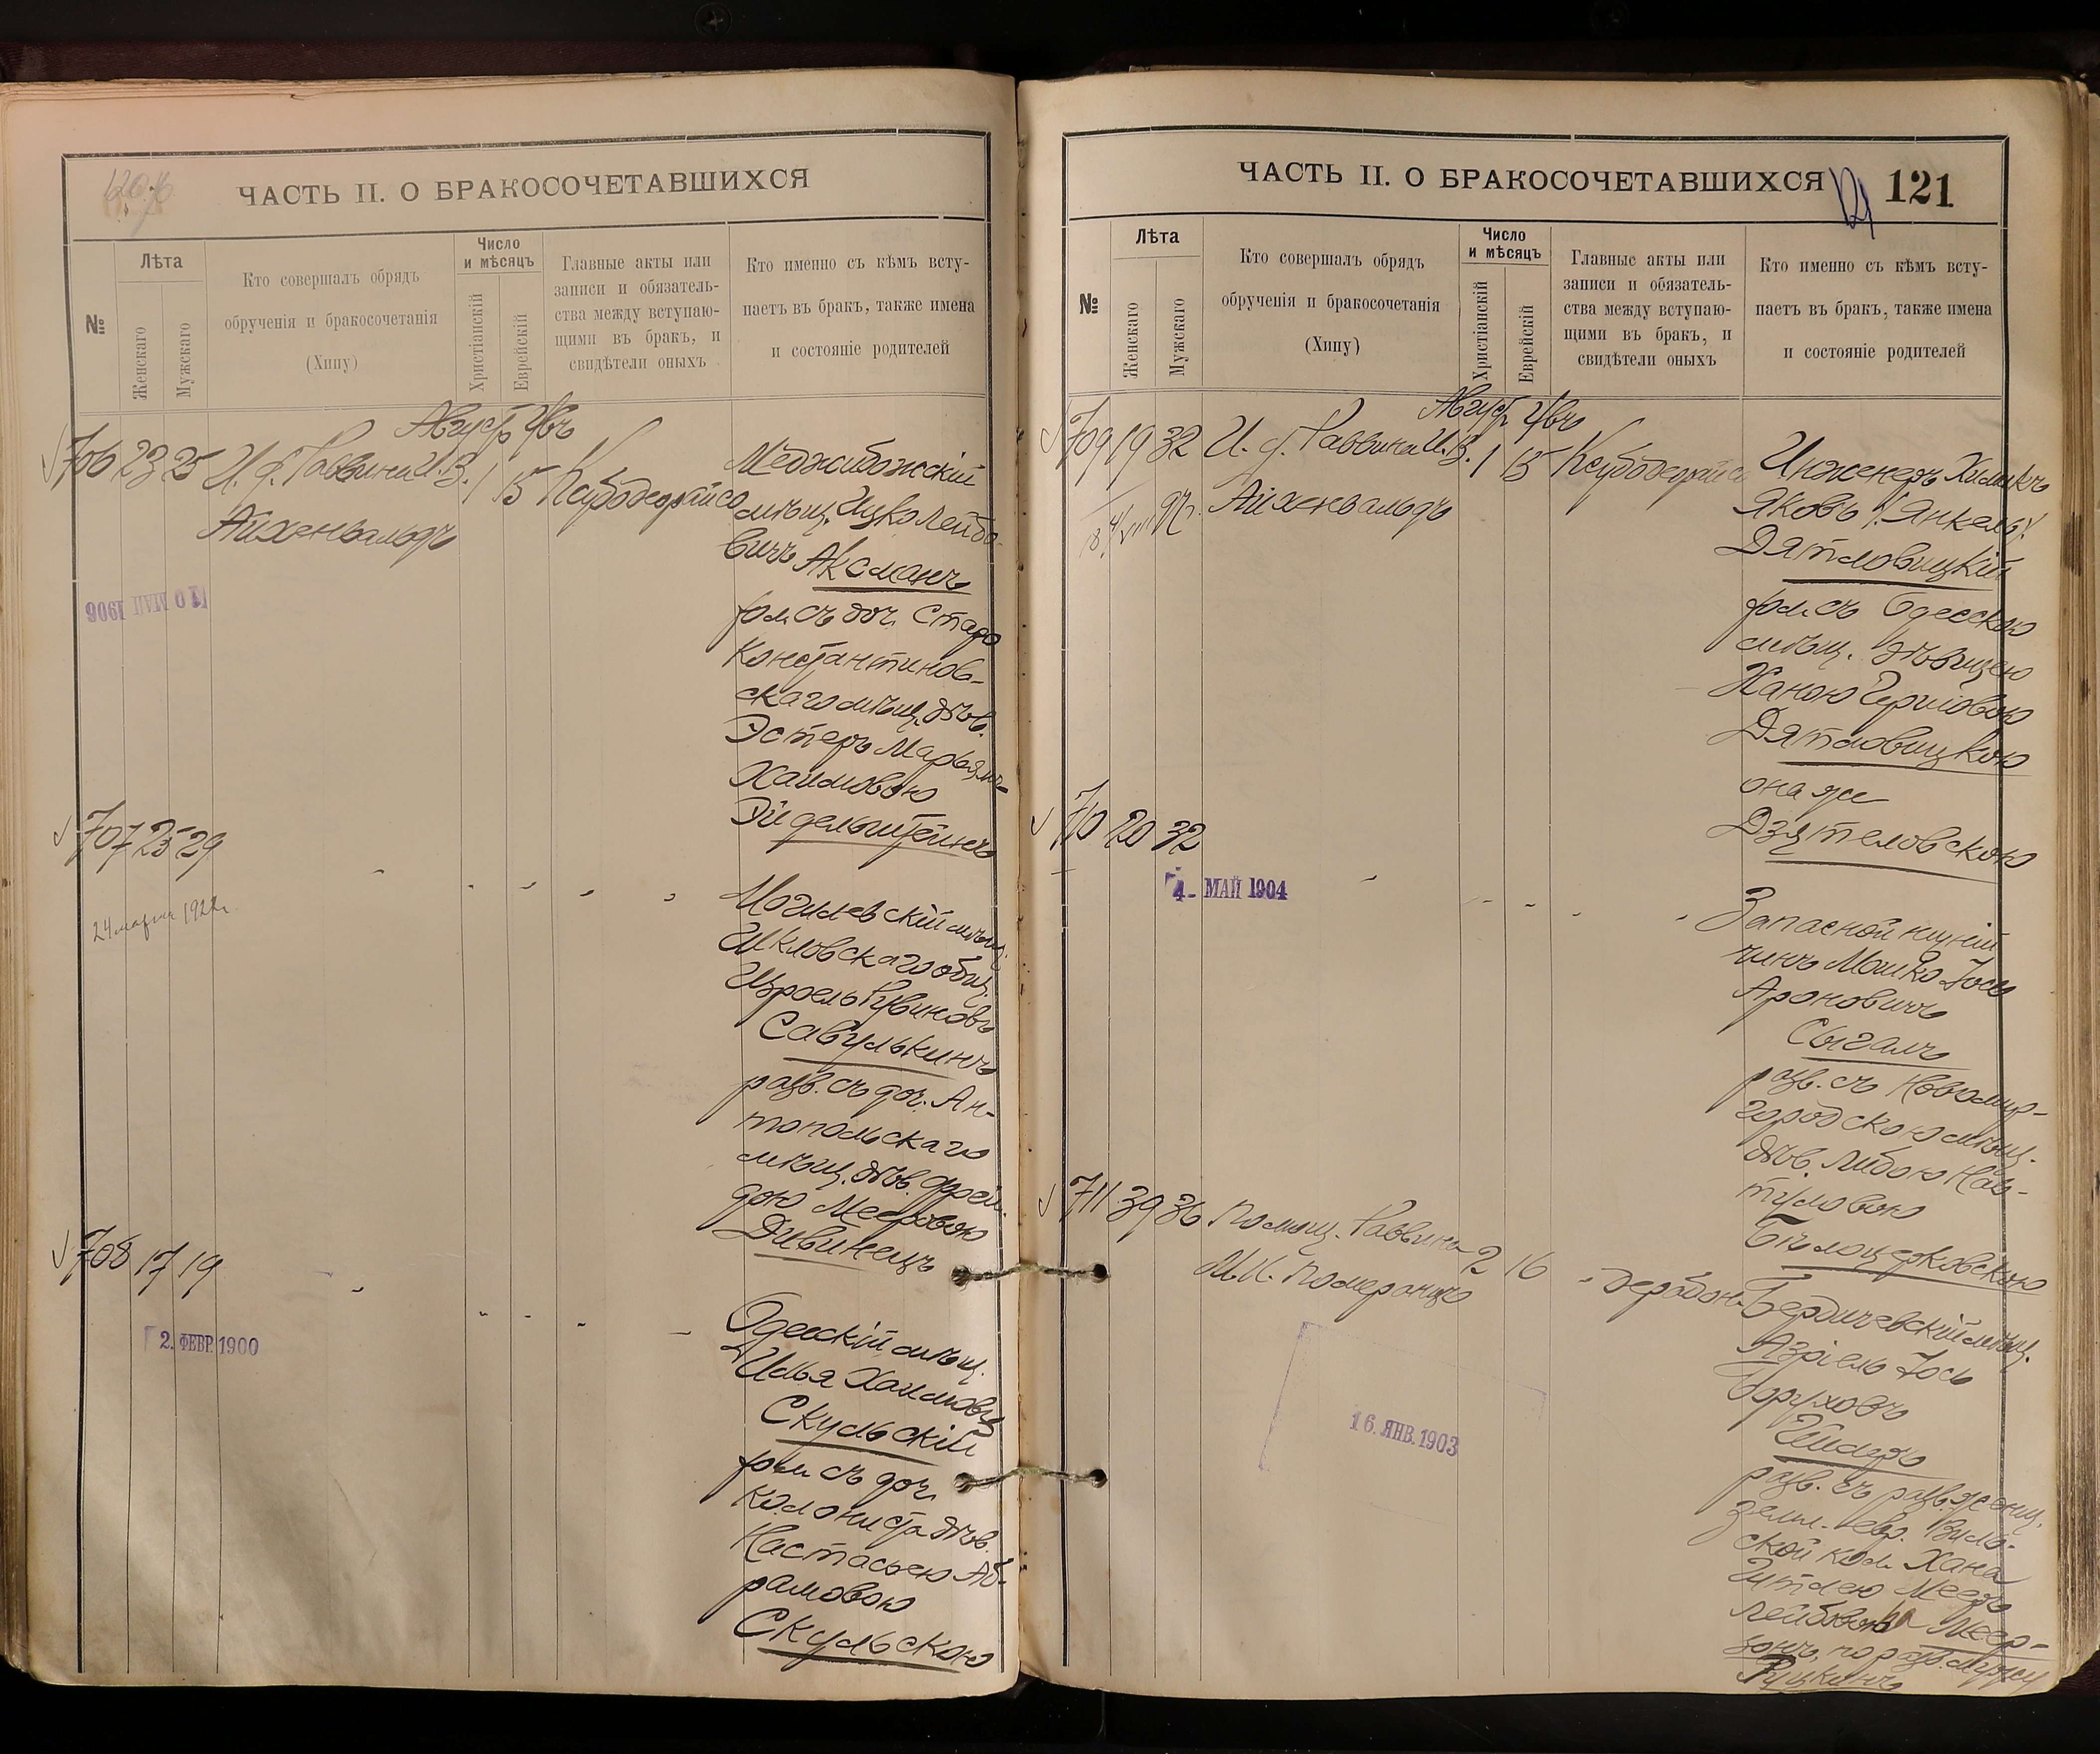 ЧАСТЬ II. О БРАКОСОЧЕТАВШИХСЯ
№
Лѣта
Женскаго
Мужскаго
Кто совершалъ обрядъ
обрученія и бракосочетанія
(Хипу)
Число
и мѣсяцъ
Христіанскій
Еврейскій
Главные акты или
записи и обязатель-
ства между вступаю-
щими въ бракъ, и
свидѣтели оныхъ
Кто именно съ кѣмъ всту-
паетъ въ бракъ, также имена
и состояніе родителей
706 23 25 И. д. Раввина И. В. 1 15
Айхенвальдъ
10 МАЙ 1906
Меджибожскій
мѣщ. Ицко Лейбо-
вичъ Аксманъ
хол. съ доч. Старо
Константинов-
скаго мѣщ. дѣв.
Эстеръ Марьямъ
Хаимовою
Эйдельштейнъ
707 25 29
24 марта 1922 г.
Могилевскій мѣщ.
Шкловскаго общ.
Израель Рувиновъ
Савулькинъ
разв. съ доч. Ан-
топольскаго
мѣщ. дѣв. Фрей-
дою Мееровою
Дивинецъ
708 17 19
2. ФЕВР. 1900
Одесскій мѣщ.
Илья Хаимовъ
Скульскій
хол. съ доч.
колониста дѣв.
Настасьею Аб-
рамовою
Скульскою
ЧАСТЬ II. О БРАКОСОЧЕТАВШИХСЯ
121
№
Лѣта
Женскаго
Мужскаго
Кто совершалъ обрядъ
обрученія и бракосочетанія
(Хипу)
Число
и мѣсяцъ
Христіанскій
Еврейскій
Главные акты или
записи и обязатель-
ства между вступаю-
щими въ бракъ, и
свидѣтели оныхъ
Кто именно съ кѣмъ всту-
паетъ въ бракъ, также имена
и состояніе родителей
709 19 32 И. д. Раввина И. В. 1 15
Айхенвальдъ
Инженеръ Химикъ
Яковъ (Янкель)
Дятловицкій
хол. съ Одесскою
мѣщ. дѣвицею
Ханою Гершовою
Дятловицкою
она же
Дзятеловскою
710 20 32
4- МАЙ 1904
Запасной нижній
чинъ Мошко Іось
Ароновичъ
Сыгалъ
разв. съ Новомир-
городскою мѣщ.
дѣв. Либою Наф-
туловою
Бѣлоцерковскою
711 39 36 Помощ. Раввина 2 16
М. И. Померанцъ
16. ЯНВ. 1903
Бердичевскій мѣщ.
Азріель Іось
Боруховъ
разв. съ разв. женщ.
земл. евр. Виль-
ской кол. Хана
Гитлею Мееръ
Лейбовою Меер-
по разв. мужу